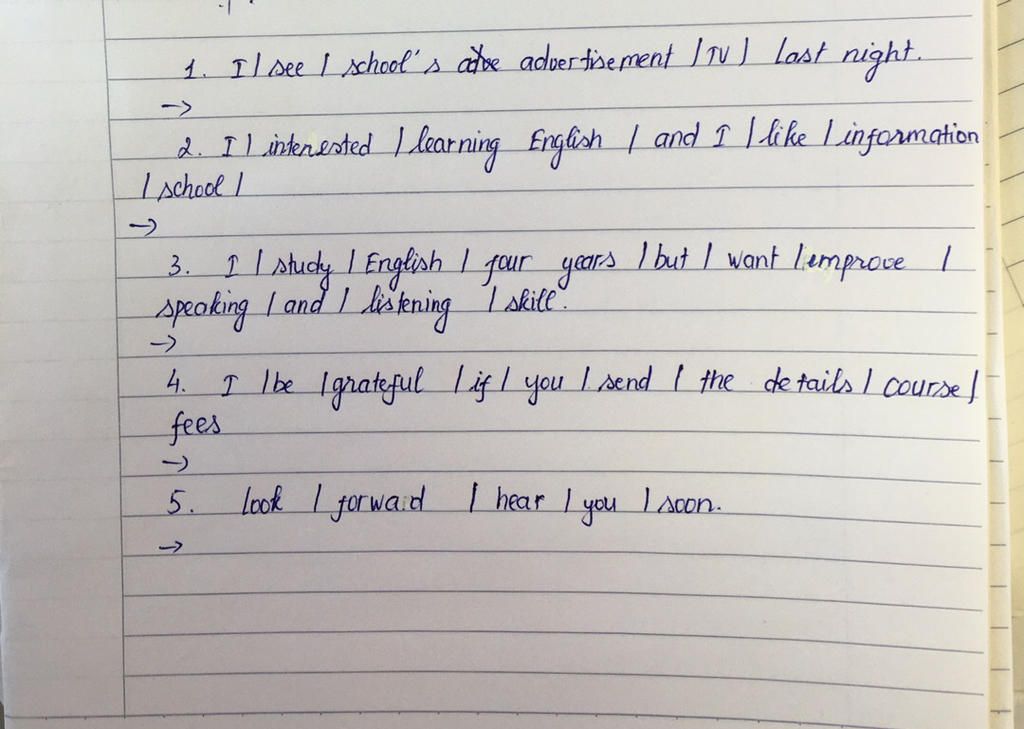 1. I / see / school's advertisement / TV / last night.
→
2. I / interested / learning English / and I / like / information
/ school /
→
3. I / study / English / four years / but / want / improve /
speaking / and / listening / skill.
→
4. I / be / grateful / if / you / send / the details / course /
fees
→
5. look / forward / hear / you / soon.
→